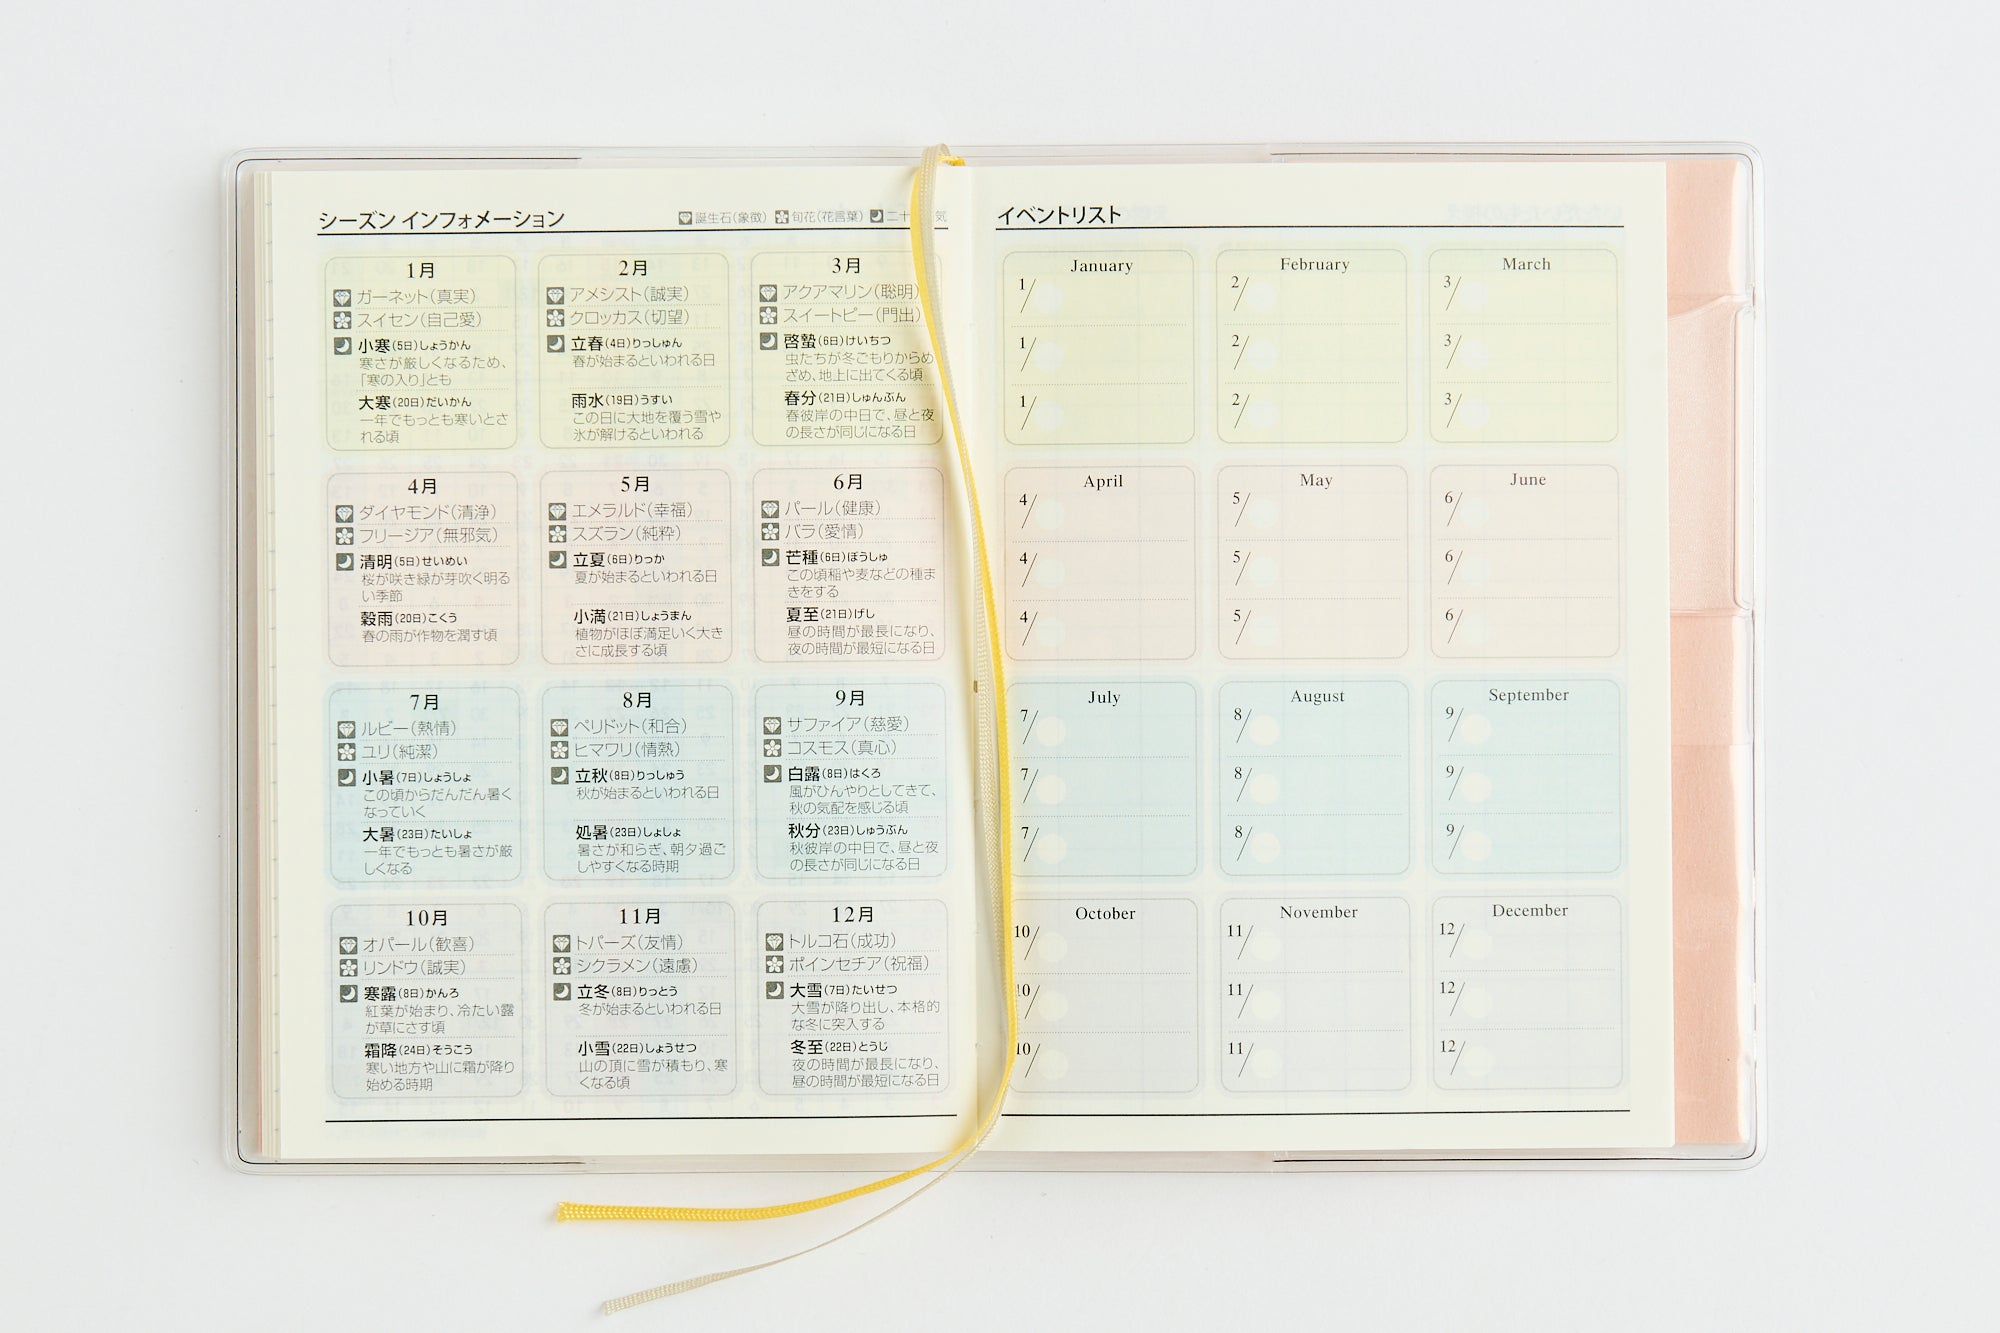 シーズン インフォメーション
誕生石(象徴) 旬花(花言葉) 二十 気
1月
ガーネット(真実)
スイセン(自己愛)
小寒(5日)しょうかん
寒さが厳しくなるため、
「寒の入り」とも
大寒(20日)だいかん
一年でもっとも寒いとさ
れる頃
2月
アメシスト(誠実)
クロッカス(切望)
立春(4日)りっしゅん
春が始まるといわれる日
雨水(19日)うすい
この日に大地を覆う雪や
氷が解けるといわれる
3月
アクアマリン(聡明)
スイートピー(門出)
啓蟄(6日)けいちつ
虫たちが冬ごもりからめ
ざめ、地上に出てくる頃
春分(21日)しゅんぶん
春彼岸の中日で、昼と夜
の長さが同じになる日
4月
ダイヤモンド(清浄)
フリージア(無邪気)
清明(5日)せいめい
桜が咲き緑が芽吹く明る
い季節
穀雨(20日)こくう
春の雨が作物を潤す頃
5月
エメラルド(幸福)
スズラン(純粋)
立夏(6日)りっか
夏が始まるといわれる日
小満(21日)しょうまん
植物がほぼ満足いく大き
さに成長する頃
6月
パール(健康)
バラ(愛情)
芒種(6日)ぼうしゅ
この頃稲や麦などの種ま
きをする
夏至(21日)げし
昼の時間が最長になり、
夜の時間が最短になる日
7月
ルビー(熱情)
ユリ(純潔)
小暑(7日)しょうしょ
この頃からだんだん暑く
なっていく
大暑(23日)たいしょ
一年でもっとも暑さが厳
しくなる
8月
ペリドット(和合)
ヒマワリ(情熱)
立秋(8日)りっしゅう
秋が始まるといわれる日
処暑(23日)しょしょ
暑さが和らぎ、朝夕過ご
しやすくなる時期
9月
サファイア(慈愛)
コスモス(真心)
白露(8日)はくろ
風がひんやりとしてきて、
秋の気配を感じる頃
秋分(23日)しゅうぶん
秋彼岸の中日で、昼と夜
の長さが同じになる日
10月
オパール(歓喜)
リンドウ(誠実)
寒露(8日)かんろ
紅葉が始まり、冷たい露
が草にさす頃
霜降(24日)そうこう
寒い地方や山に霜が降り
始める時期
11月
トパーズ(友情)
シクラメン(遠慮)
立冬(8日)りっとう
冬が始まるといわれる日
小雪(22日)しょうせつ
山の頂に雪が積もり、寒
くなる頃
12月
トルコ石(成功)
ポインセチア(祝福)
大雪(7日)たいせつ
大雪が降り出し、本格的
な冬に突入する
冬至(22日)とうじ
夜の時間が最長になり、
昼の時間が最短になる日
イベントリスト
January
1/
1/
1/
February
2/
2/
2/
March
3/
3/
3/
April
4/
4/
4/
May
5/
5/
5/
June
6/
6/
6/
July
7/
7/
7/
August
8/
8/
8/
September
9/
9/
9/
October
10/
10/
10/
November
11/
11/
11/
December
12/
12/
12/